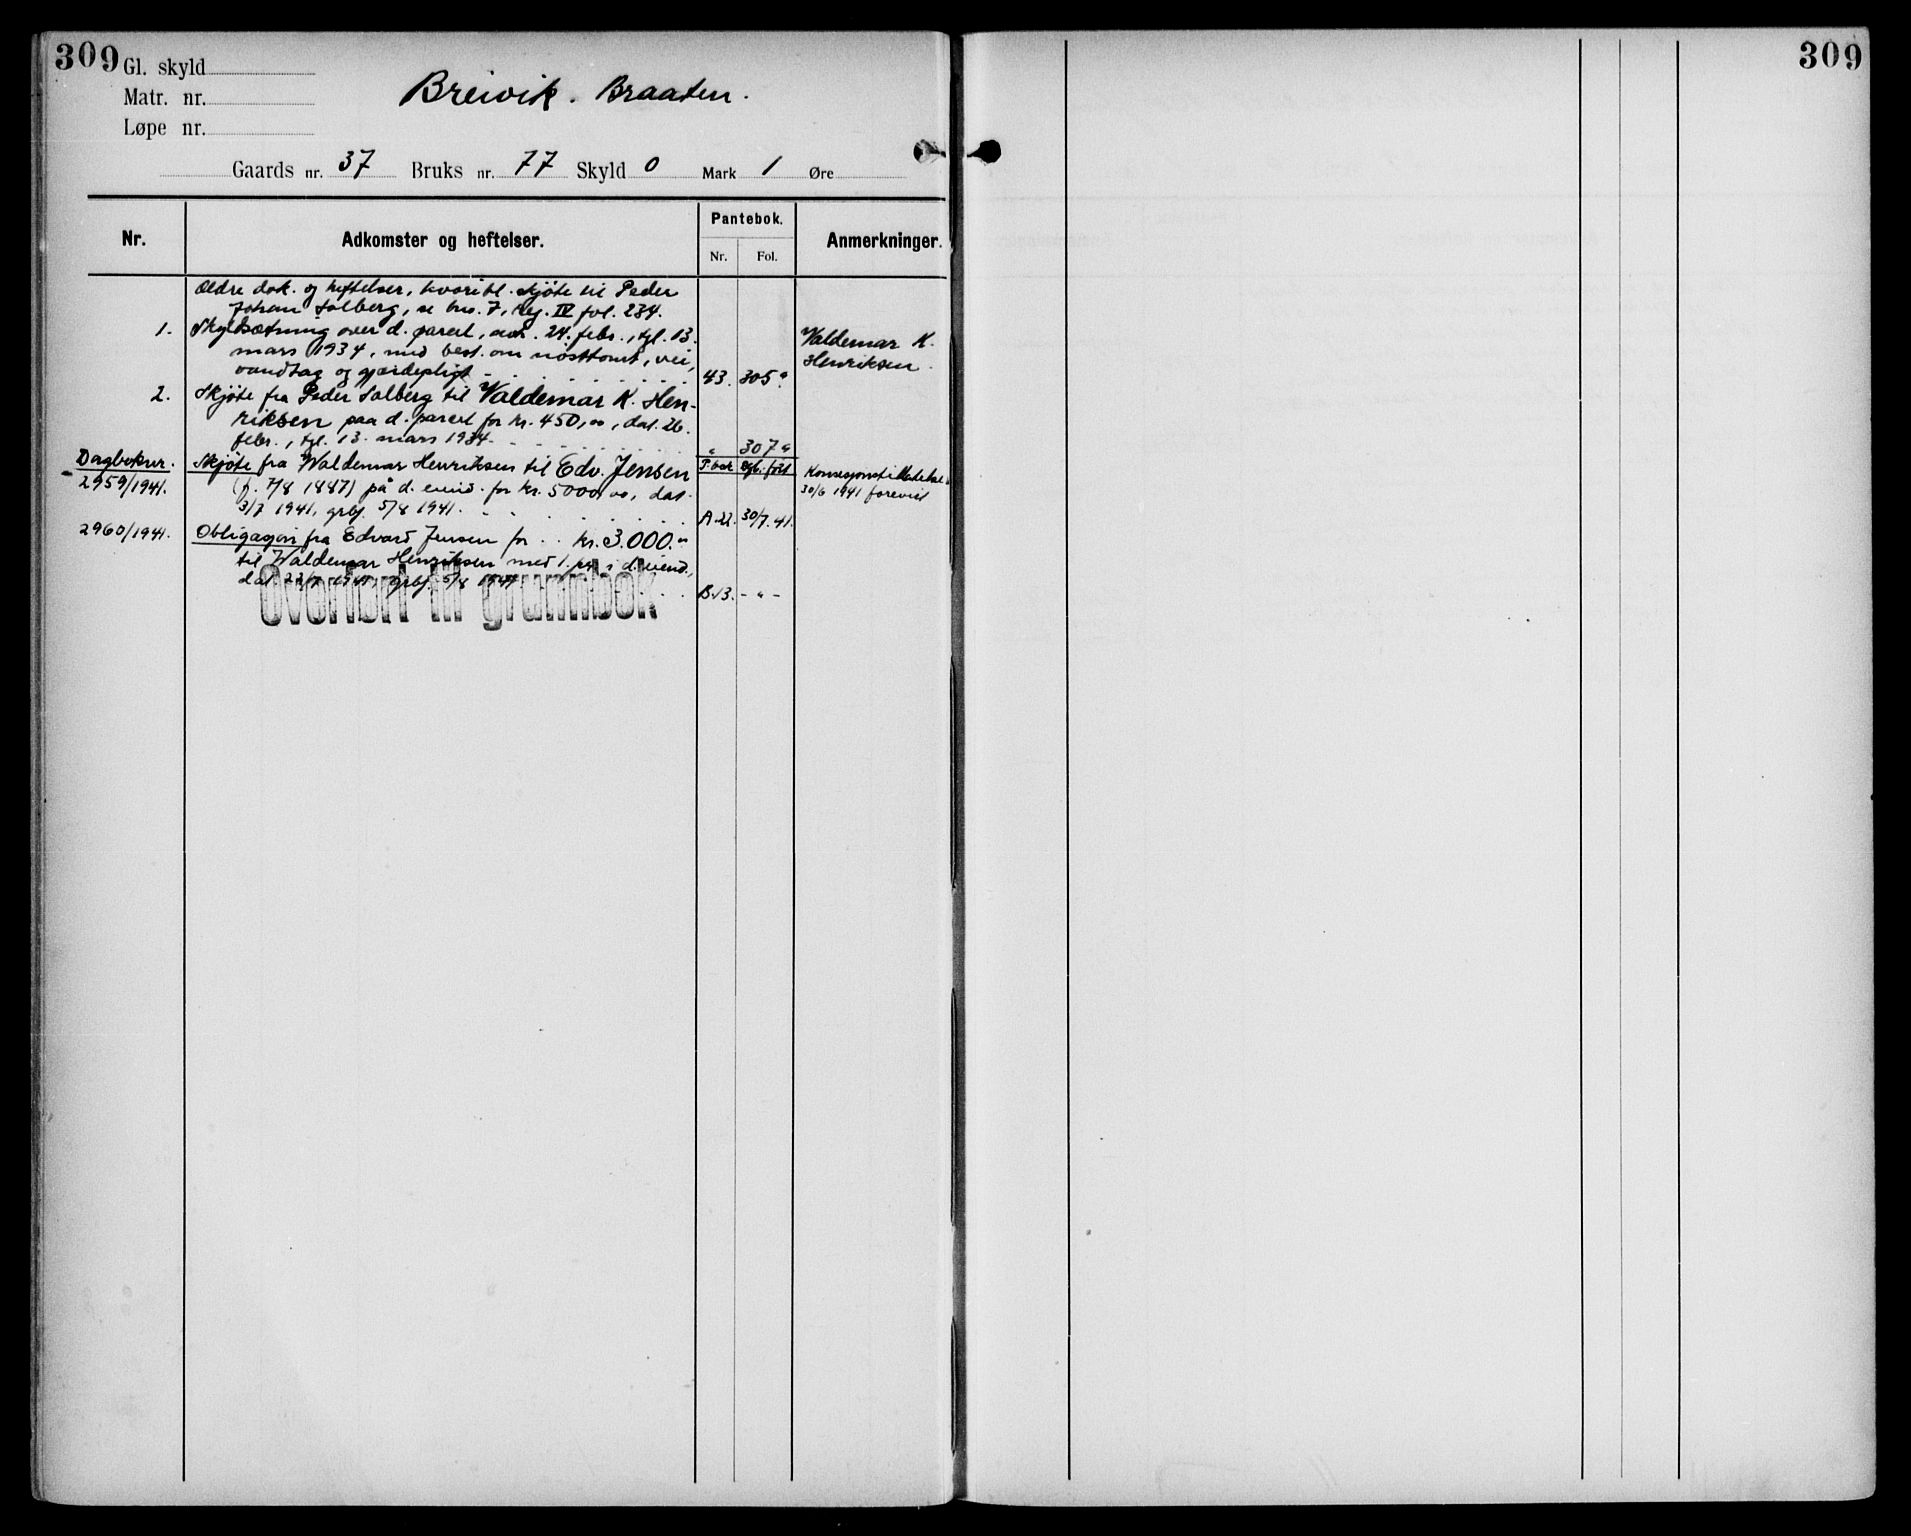 309
309
Gl. skyld
Matr. nr.
Løpe nr.
Breivik. Braaten.
Gaards nr. 37 Bruks nr. 77 Skyld 0 Mark 1 Øre
Nr.
Adkomster og heftelser.
Pantebok.
Nr. Fol.
Anmerkninger.
Ældre dok. og heftelser, hvoribl. skjøte til Peder
Johan Solberg, se bns. 7, Reg. IV fol. 234.
1. Skyldsætning over d. parcel, avh. 24. febr., tgl. 13.
mars 1934, med best. om nösttomt, vei,
vandtag og gjærdeplikt 43. 305 a
Valdemar K.
Henriksen.
2. Skjøte fra Peder Solberg til Valdemar K. Hen-
riksen paa d. parcel for kr. 450,00, dat. 26.
febr., tgl. 13. mars 1934. " 307 a
Dagboknr. Skjøte fra Waldemar Henriksen til Edv. Jensen P.bok dgb.ført
2959/1941. (f. 7/8 1887) på d. eiend. for kr. 5000,00, dat.
3/7 1941, grbf. 5/8 1941. A 22. 30/7.41.
Konsesjonstillatelse
30/6 1941 forevist
2960/1941. Obligasjon fra Edvard Jensen for kr. 3.000.00
til Waldemar Henriksen med 1. pr. i d. eiend.,
dat. 22/7 1941, grbf. 5/8 1941 B.13. - " -
Overført til grunnbok